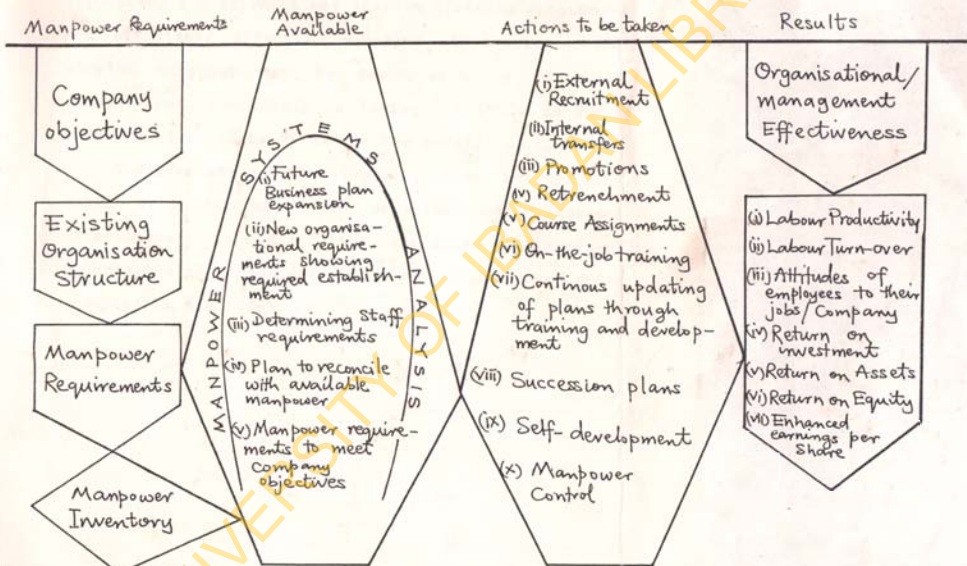 Manpower Requirements
Manpower
Available
Actions to be taken
Results
Company
objectives
Existing
Organisation
Structure
Manpower
Requirements
Manpower
Inventory
MANPOWER SYSTEMS ANALYSIS
(i) Future
Business plan
expansion
(ii) New organisa-
tional require-
ments showing
required establish-
ment
(iii) Determining Staff
requirements
(iv) Plan to reconcile
with available
manpower
(v) Manpower require-
ments to meet
Company
objectives
(i) External
Recruitment
(ii) Internal
transfers
(iii) Promotions
(iv) Retrenchment
(v) Course Assignments
(vi) On-the-job training
(vii) Continous updating
of plans through
training and develop-
ment
(viii) Succession plans
(ix) Self-development
(x) Manpower
Control
Organisational/
management
Effectiveness
(i) Labour Productivity
(ii) Labour Turn-over
(iii) Attitudes of
employees to their
jobs/Company
(iv) Return on
investment
(v) Return on Assets
(vi) Return on Equity
(vii) Enhanced
earnings per
share
UNIVERSITY OF IBADAN LIBRA